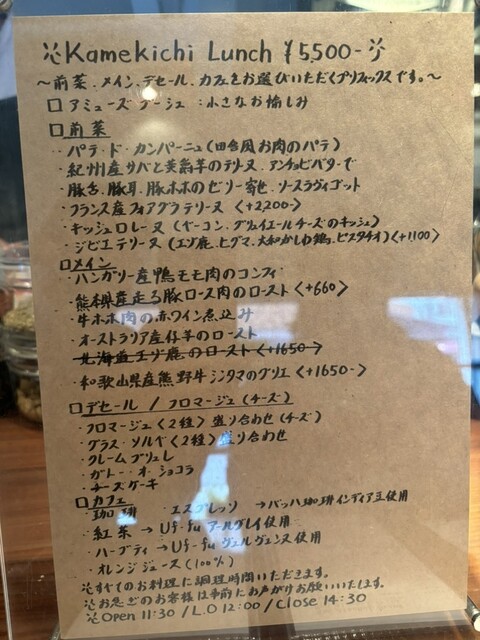 Kamekichi Lunch ¥5,500-
〜前菜.メイン.デセール.カフェをお選びいただくプリフィックスです。〜
□アミューズブーシュ:小さなお愉しみ
□前菜
・パテ・ド・カンパーニュ(田舎風お肉のパテ)
・紀州産サバと黄金芋のテリーヌ.アンチョビバターで
・豚舌.豚耳.豚ホホのゼリー寄せ.ソースラヴィゴット
・フランス産フォアグラテリーヌ〈+2,200-〉
・キッシュロレーヌ(ベーコン.グリュイエールチーズのキッシュ)
・ジビエテリーヌ(エゾ鹿.ヒグマ.大和かしわ鶏.ピスタチオ)〈+1100〉
□メイン
・ハンガリー産鴨モモ肉のコンフィ
・熊本県産走る豚ロース肉のロースト〈+660〉
・牛ホホ肉の赤ワイン煮込み
・オーストラリア産仔羊のロースト
・北海道エゾ鹿のロースト〈+1650-〉
・和歌山県産熊野牛シンタマのグリエ〈+1650-〉
□デセール / フロマージュ(チーズ)
・フロマージュ〈2種〉盛り合わせ(チーズ)
・グラス・ソルベ〈2種〉盛り合わせ
・クレームブリュレ
・ガトー・オ・ショコラ
・チーズケーキ
□カフェ
・珈琲 ・エスプレッソ →バッハ珈琲インディア豆使用
・紅茶→Uf-fuアールグレイ使用
・ハーブティ→Uf-fuヴェルヴェンヌ使用
・オレンジジュース(100%)
※すべてのお料理に調理時間いただきます。
※お急ぎのお客様は事前にお声がけお願いいたします。
※Open 11:30 / L.O 12:00 / Close 14:30